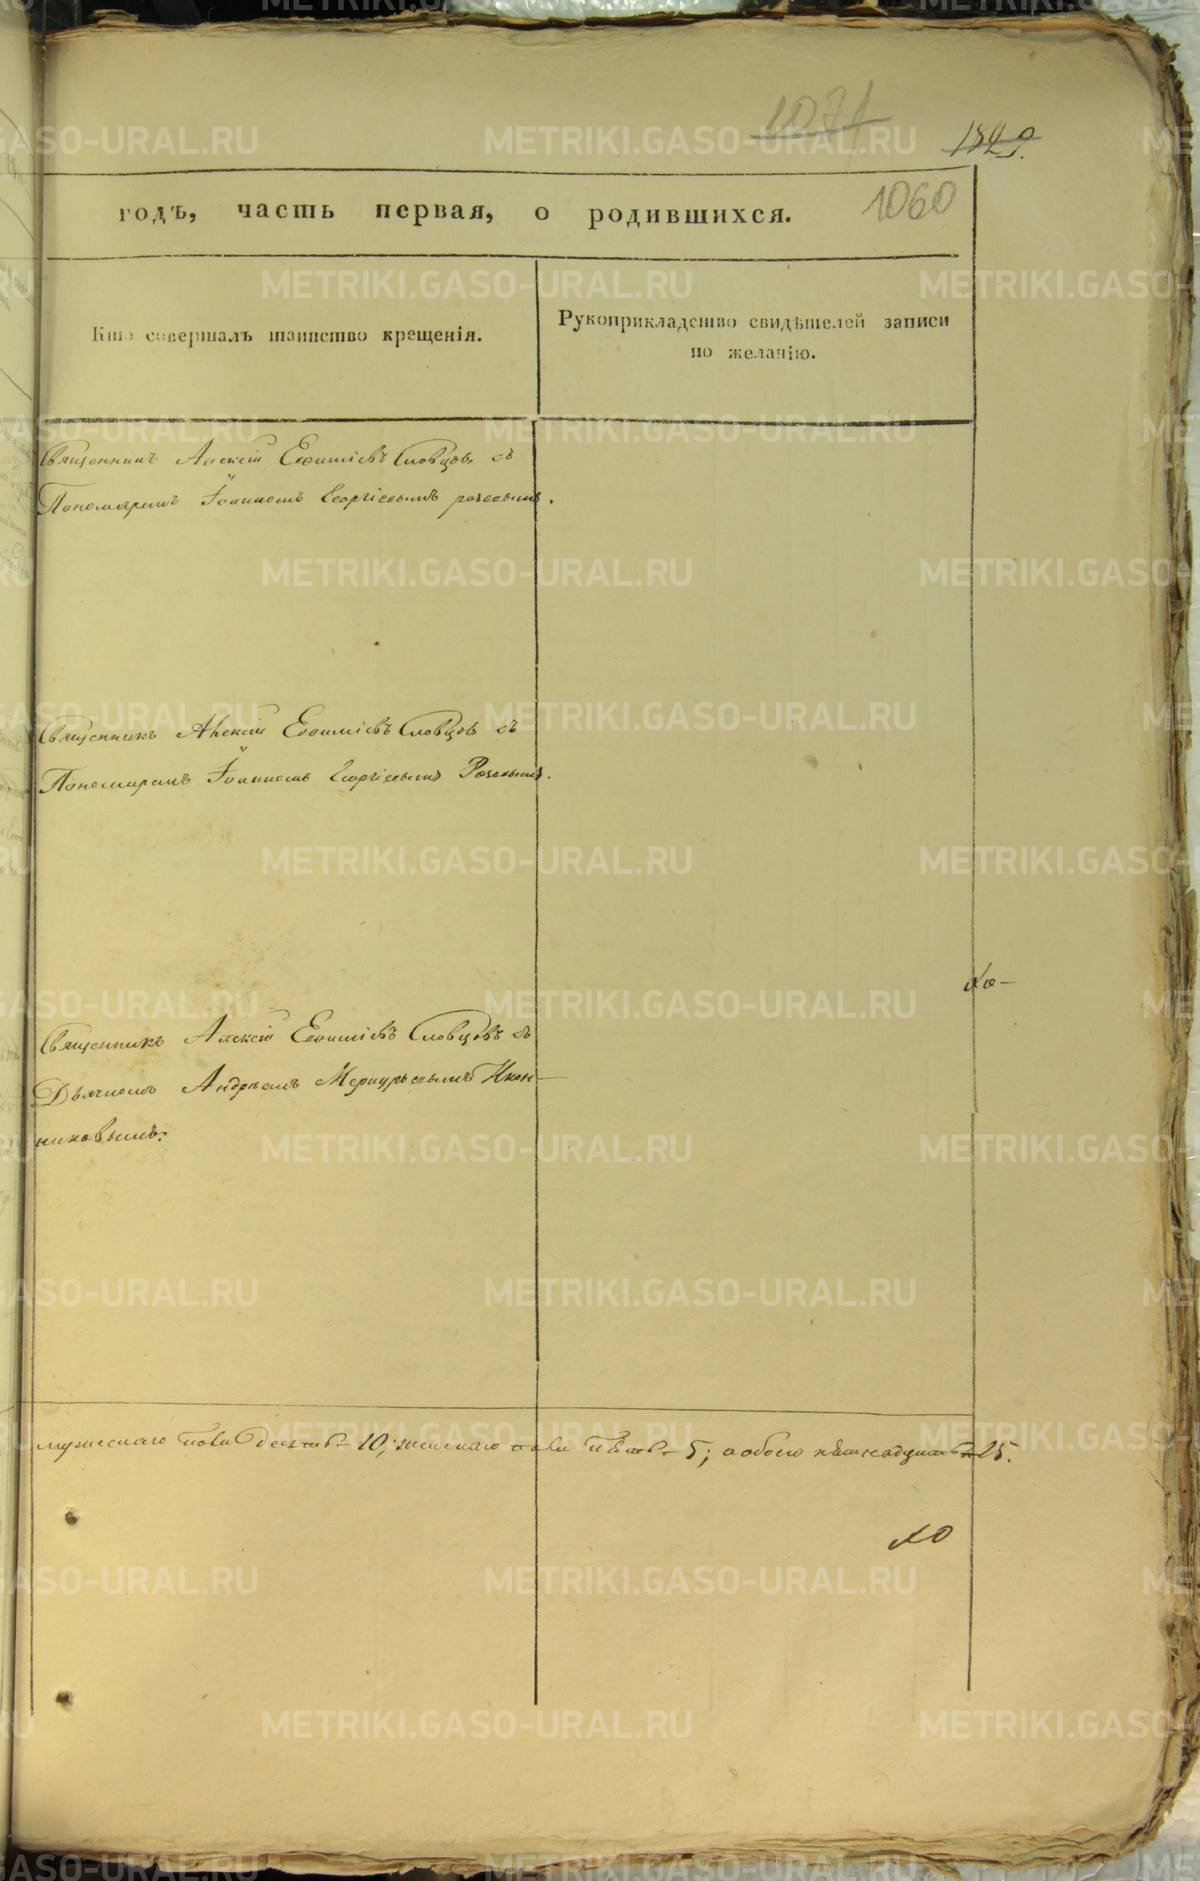 1071
1829.
годъ, часть первая, о родившихся.
1060
Кто совершалъ таинство крещенія.
Рукоприкладство свидѣтелей записи
по желанію.
Священникъ Алексій Евѳиміевъ Словцовъ съ
Пономаремъ Іоанномъ Георгіевымъ
Священникъ Алексій Евѳиміевъ Словцов съ
Пономаремъ Іоанномъ Георгіевымъ
Священникъ Алексій Евѳиміевъ Словцовъ съ
Дьячкомъ Андреемъ Меркурьевымъ Икон-
никовымъ.
мужескаго пола десять 10; женскаго пола пять 5; а обоего пятнадцать 15.
METRIKI.GASO-URAL.RU